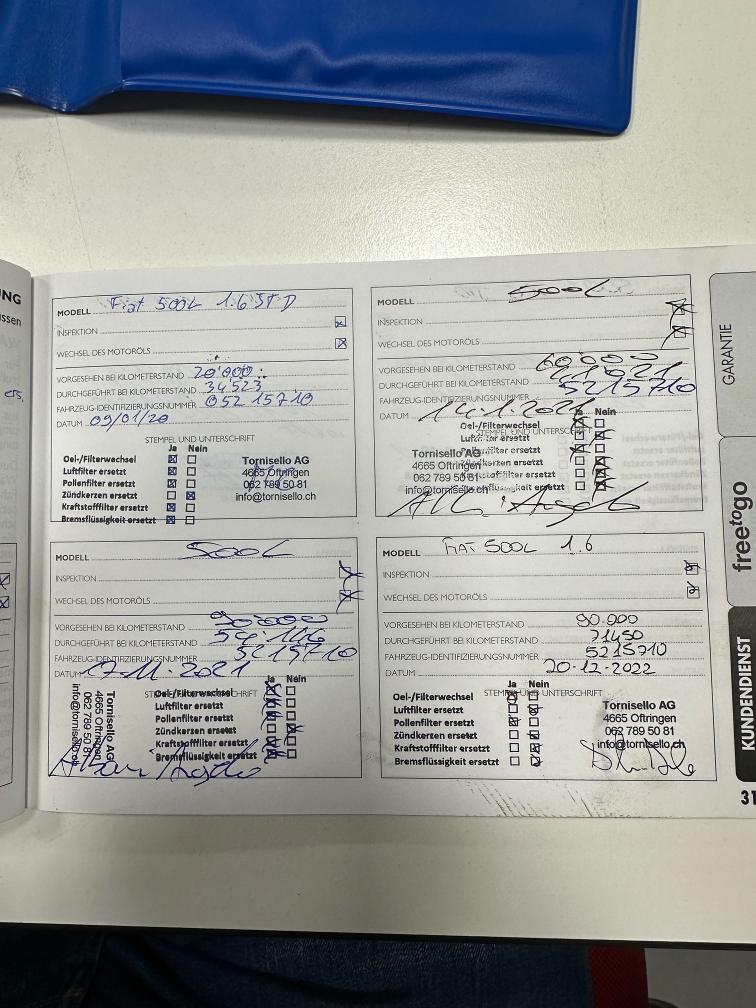 NG
ssen
MODELL Fiat 500L 1.6 JT D
INSPEKTION
WECHSEL DES MOTORÖLS
VORGESEHEN BEI KILOMETERSTAND 20'000
DURCHGEFÜHRT BEI KILOMETERSTAND 34'523
FAHRZEUG-IDENTIFIZIERUNGSNUMMER 05215710
DATUM 09/01/20
STEMPEL UND UNTERSCHRIFT
Ja Nein
Oel-/Filterwechsel
Luftfilter ersetzt
Pollenfilter ersetzt
Zündkerzen ersetzt
Kraftstofffilter ersetzt
Bremsflüssigkeit ersetzt
Tornisello AG
4665 Oftringen
062 789 50 81
info@tornisello.ch
MODELL 500L
INSPEKTION
WECHSEL DES MOTORÖLS
VORGESEHEN BEI KILOMETERSTAND 60'000
DURCHGEFÜHRT BEI KILOMETERSTAND
FAHRZEUG-IDENTIFIZIERUNGSNUMMER 5215710
DATUM 14.1.2021
Ja Nein
Oel-/Filterwechsel
STEMPEL UND UNTERSCHRIFT
Luftfilter ersetzt
Pollenfilter ersetzt
Zündkerzen ersetzt
Kraftstofffilter ersetzt
Bremsflüssigkeit ersetzt
Tornisello AG
4665 Oftringen
062 789 50 81
info@tornisello.ch
MODELL 500L
INSPEKTION
WECHSEL DES MOTORÖLS
VORGESEHEN BEI KILOMETERSTAND 90'000
DURCHGEFÜHRT BEI KILOMETERSTAND
FAHRZEUG-IDENTIFIZIERUNGSNUMMER 5215710
DATUM 17.11.2021
Ja Nein
STEMPEL UND UNTERSCHRIFT
Oel-/Filterwechsel
Luftfilter ersetzt
Pollenfilter ersetzt
Zündkerzen ersetzt
Kraftstofffilter ersetzt
Bremsflüssigkeit ersetzt
Tornisello AG
4665 Oftringen
062 789 50 81
info@tornisello.ch
MODELL FIAT 500L 1.6
INSPEKTION
WECHSEL DES MOTORÖLS
VORGESEHEN BEI KILOMETERSTAND 90.000
DURCHGEFÜHRT BEI KILOMETERSTAND 71450
FAHRZEUG-IDENTIFIZIERUNGSNUMMER 5215710
DATUM 20-12-2022
Ja Nein
STEMPEL UND UNTERSCHRIFT
Oel-/Filterwechsel
Luftfilter ersetzt
Pollenfilter ersetzt
Zündkerzen ersetzt
Kraftstofffilter ersetzt
Bremsflüssigkeit ersetzt
Tornisello AG
4665 Oftringen
062 789 50 81
info@tornisello.ch
GARANTIE
freetogo
KUNDENDIENST
31